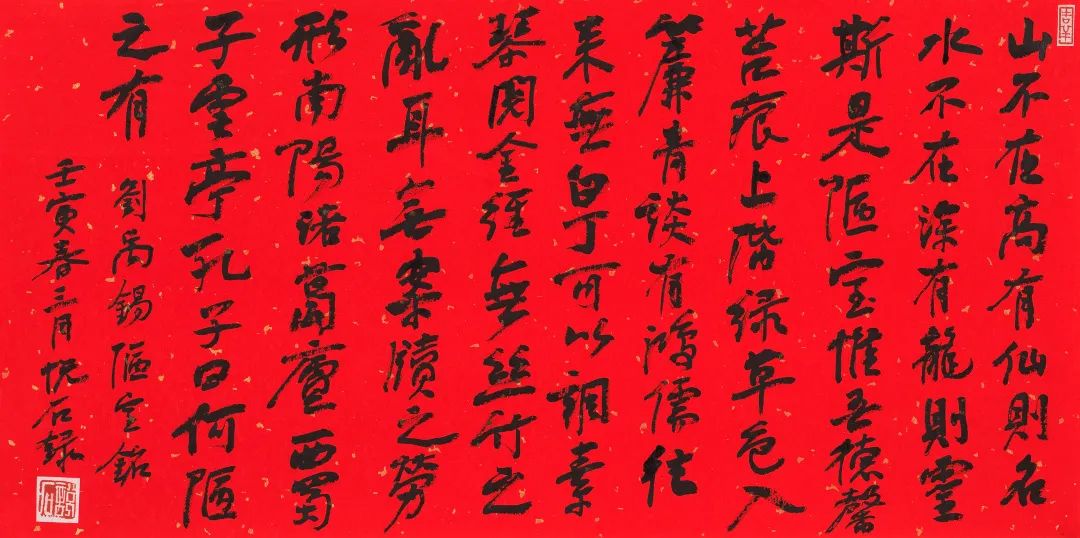 山不在高有仙則名
水不在深有龍則靈
斯是陋室惟吾德馨
苔痕上階緑草色入
簾青談有鴻儒往
来無白丁可以調素
琴閲金經無絲竹之
亂耳無案牘之勞
形南陽諸葛廬西蜀
子雲亭孔子曰何陋
之有 劉禹錫陋室銘
壬寅春三月悦石録